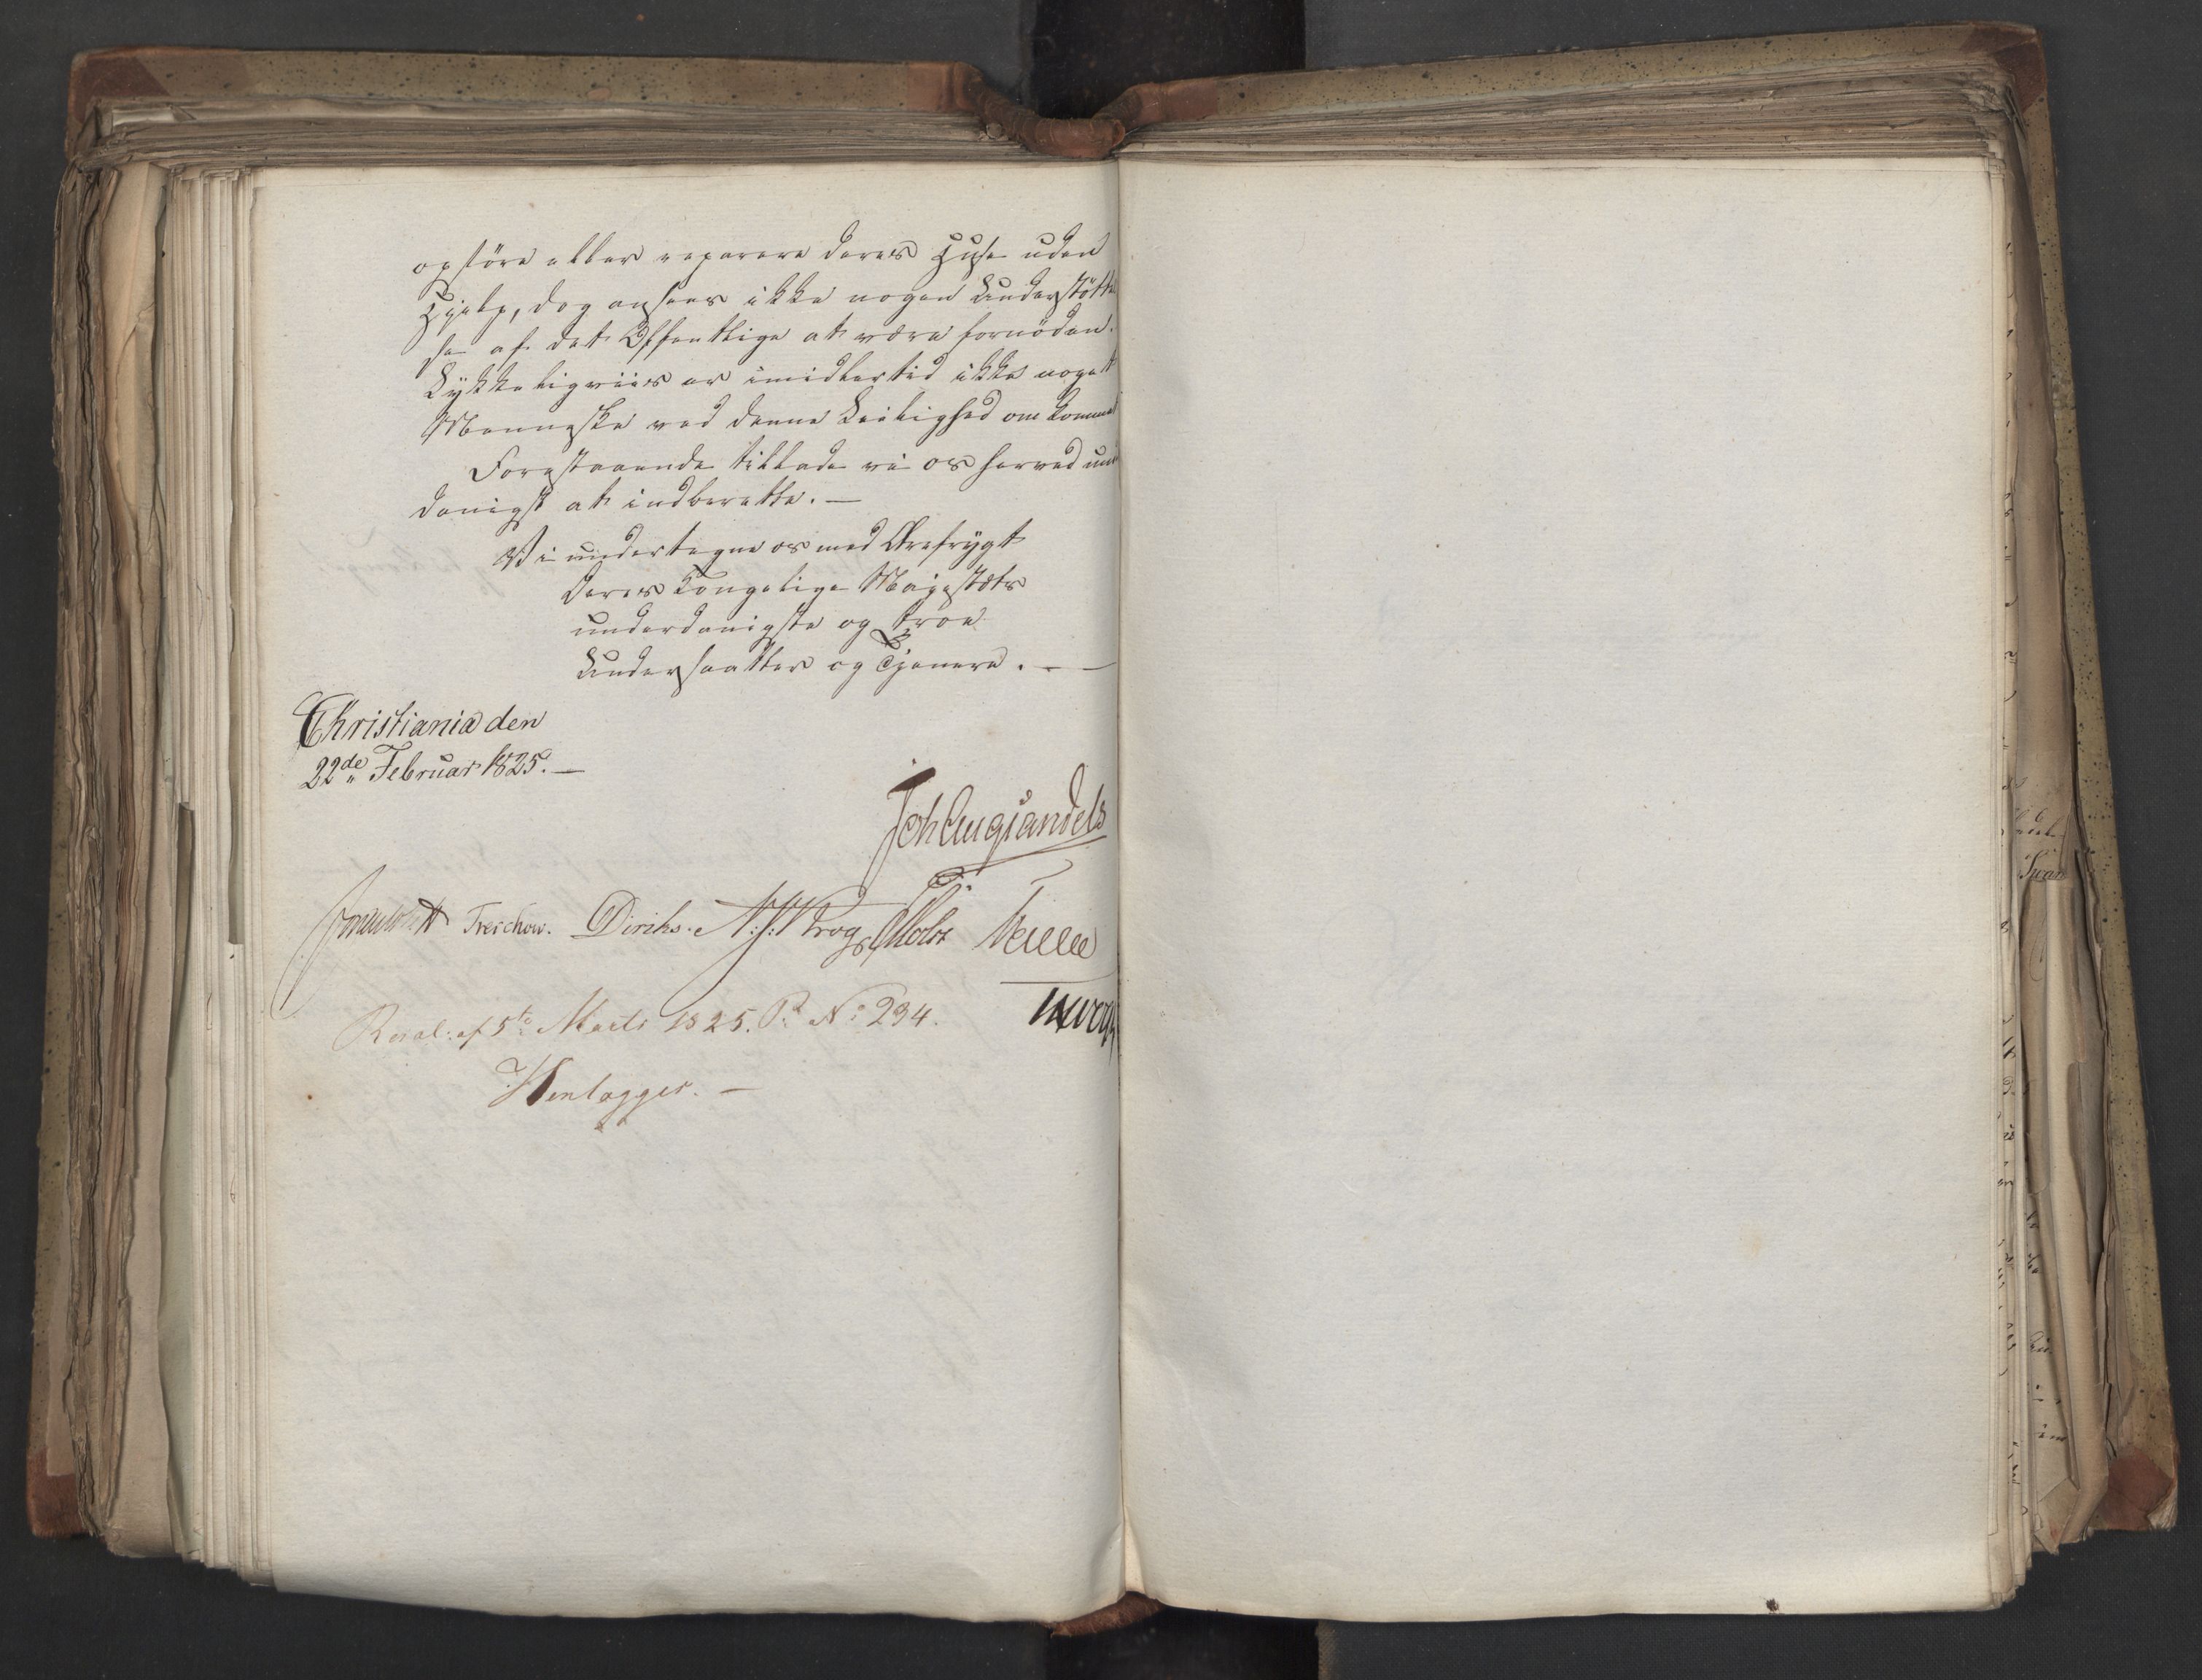 opföre eller reparere deres Huse uden
Hjelp, dog ansees ikke nogen Understöttel
se af det Offentlige at være fornöden.
Lykkeligviis er imidlertid ikke noget
Menneske ved denne Leilighed omkommet
Forestaaende tillade vi os herved un
danigst at indberette. —
Vi undertegne os med Ærefrygt
Deres Kongelige Majestæts
underdanigste og troe
Undersaatter og Tjenere. —
Christiania den
22de Februar 1825. —
Joh Aug Sandels
Treschow. Diriks. Krog Motz
Resol: af 5te Marts 1825. P. No 234.
Henlægges. —